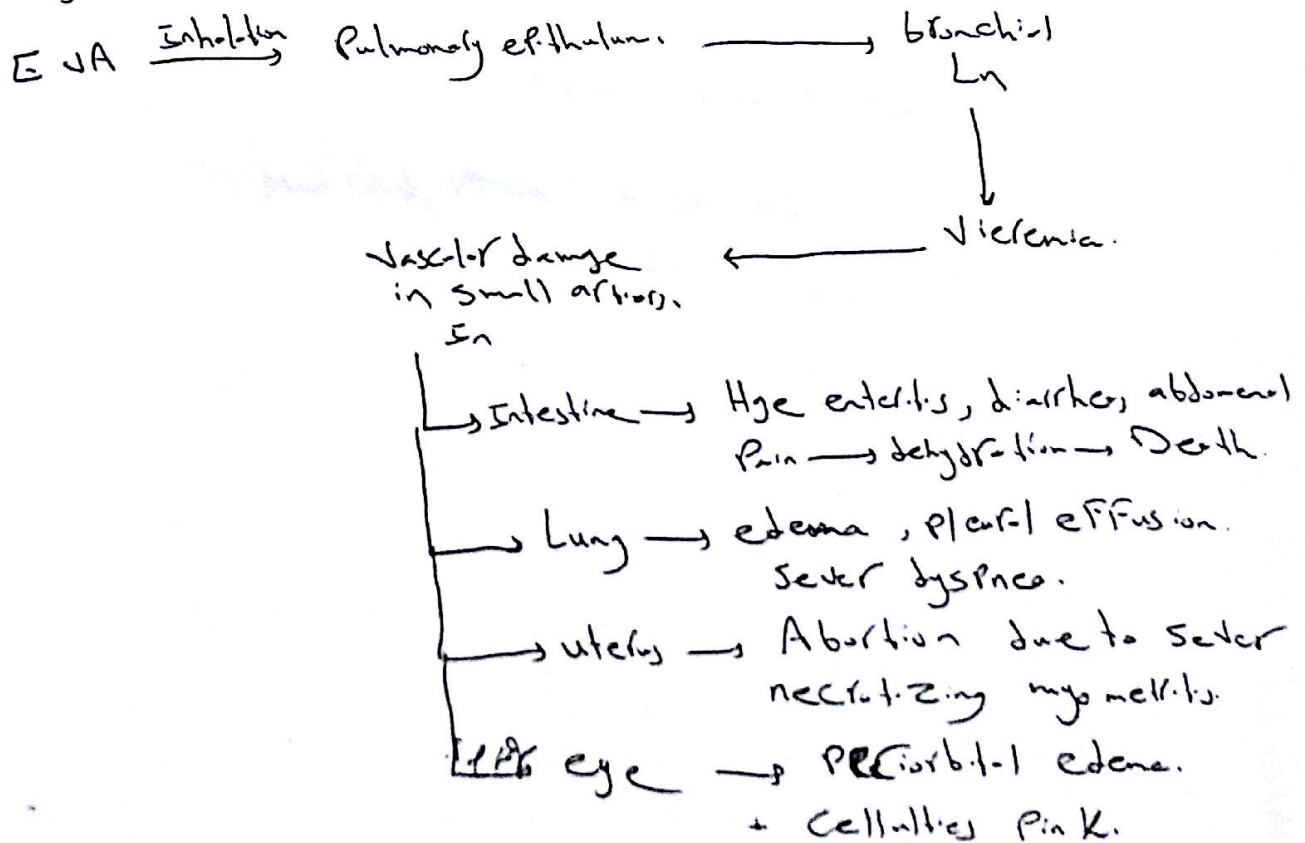 EVA Inhalation Pulmonary epithulum. bronchial
Ln
Vieremia.
Vascular damge
in small artiors.
In
Intestine Hge enteritis, diarrhea, abdomenal
Pain dehydration Death.
Lung edema, pleural effusion.
Sever dyspnea.
uterus Abortion due to sever
necrotizing myometritis.
eye periorbital edema.
+ Cellulties Pink.